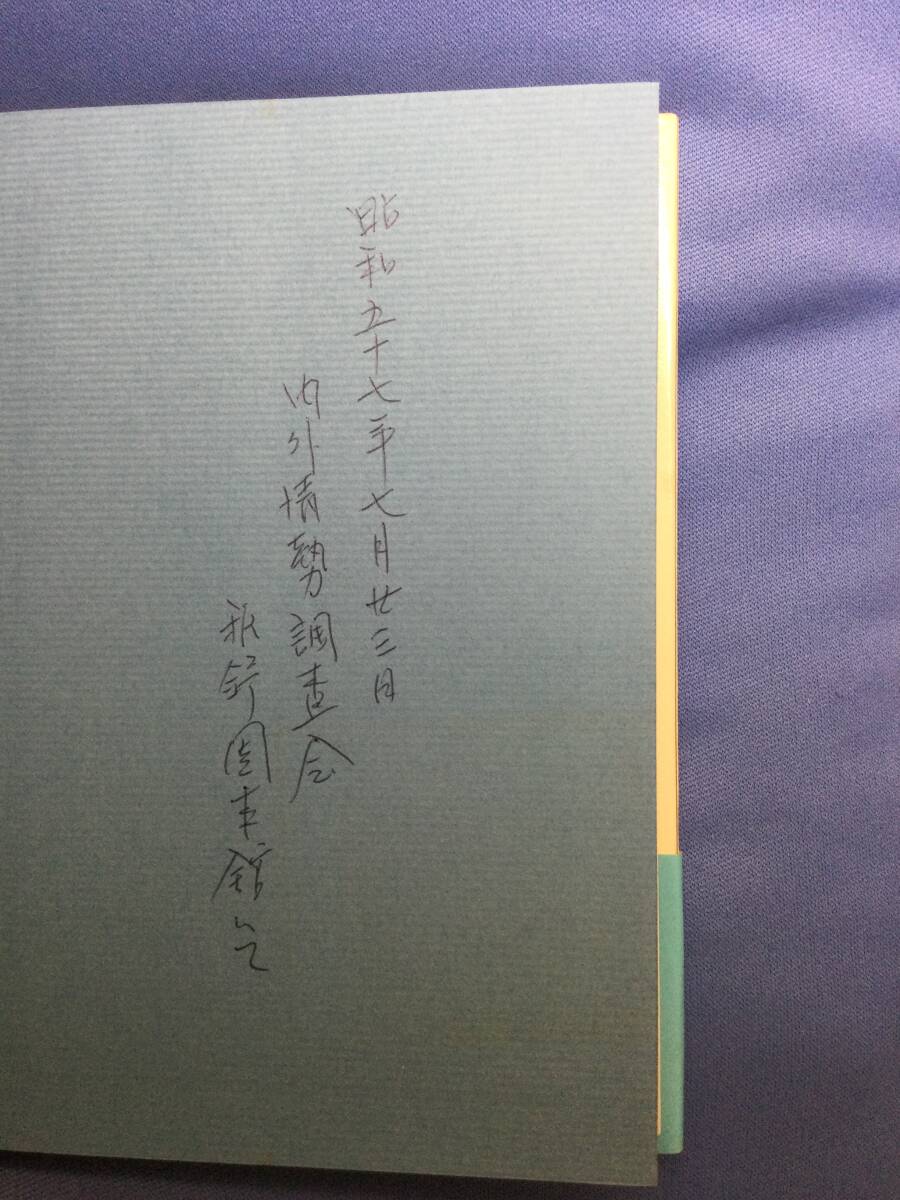 昭和五十七年七月廿三日
内外情勢調査会
図書館にて